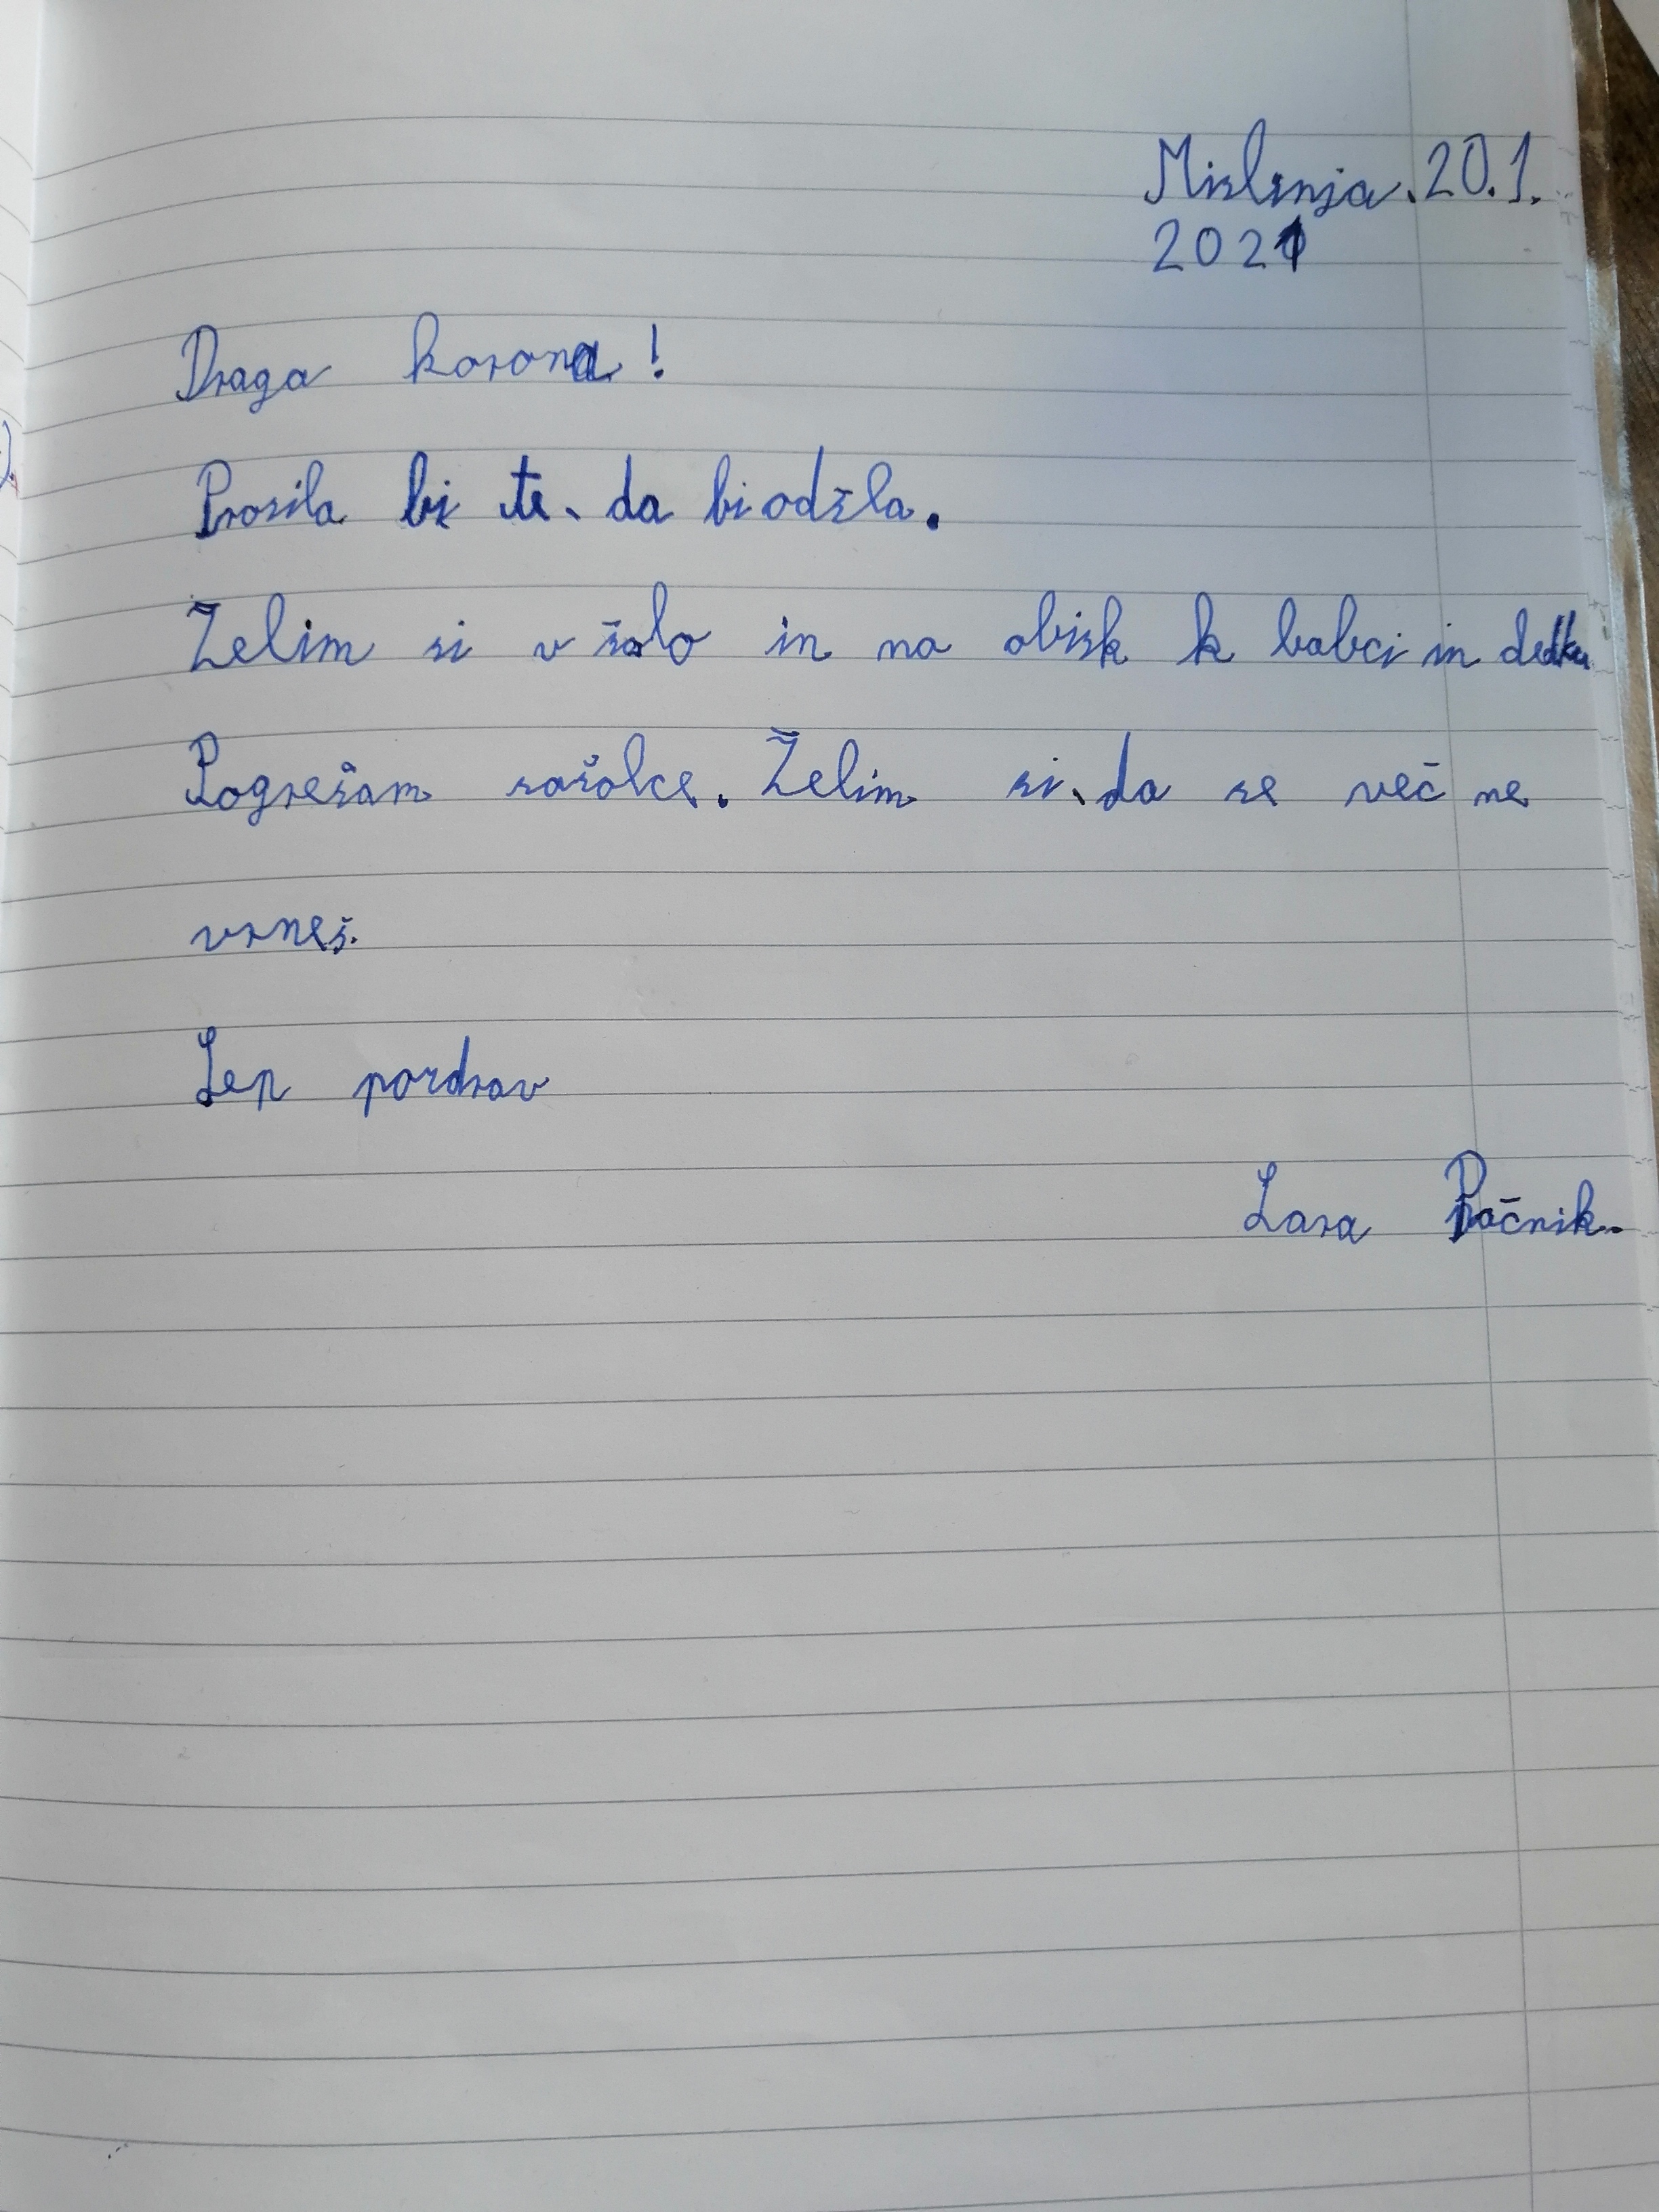 Mislinja, 20.1.
2021
Draga korona!
Prosila bi te, da bi odšla.
Želim si v šolo in na obisk k babci in dedku
Pogrešam sošolce. Želim si, da se več ne
vrneš.
Lep pozdrav
Lara Pačnik.